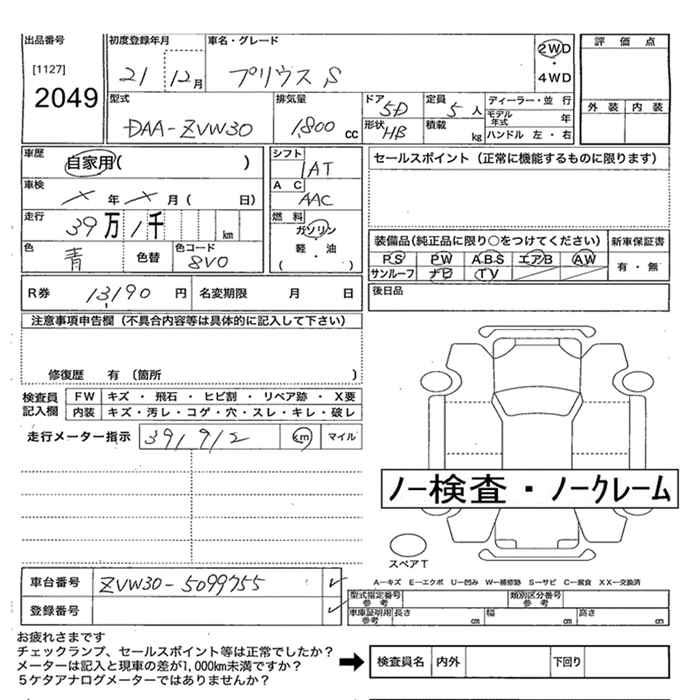 出品番号 初度登録年月 車名・グレード 評価点
[1127] 21 12月 プリウス S 2WD ・ 4WD
2049 外装 内装
型式 排気量 ドア 定員 ディーラー・並行
DAA-ZVW30 1,800cc 5D 5人 モデル年式 年
形状 HB 積載 kg ハンドル 左・右
車歴 自家用( ) シフト 1AT セールスポイント(正常に機能するものに限ります)
車検 × 年 × 月 ( 日) AC AAC
走行 39万 1千 km 燃料 ガソリン 軽・油 ( )
装備品(純正品に限り○をつけてください) 新車保証書
色 青 色替 色コード 8V0
PS PW ABS エアB AW 有・無
サンルーフ ナビ TV
R券 13,190円 名変期限 月 日 後日品
注意事項申告欄(不具合内容等は具体的に記入して下さい)
修復歴 有(箇所 )
検査員記入欄 FW キズ・飛石・ヒビ割・リペア跡・X要
内装 キズ・汚レ・コゲ・穴・スレ・キレ・破レ
走行メーター指示 391912 km マイル
ノー検査・ノークレーム
スペアT
A-キズ E-エクボ U-凹み W-補修跡 S-サビ C-腐食 XX-交換済
車台番号 ZVW30-5099755 型式指定番号 参考 類別区分番号 参考
登録番号 車庫証明用 参考 長さ cm 幅 cm 高さ cm
お疲れさまです
チェックランプ、セールスポイント等は正常でしたか?
メーターは記入と現車の差が1,000km未満ですか? 検査員名 内外 下回り
5ケタアナログメーターではありませんか?